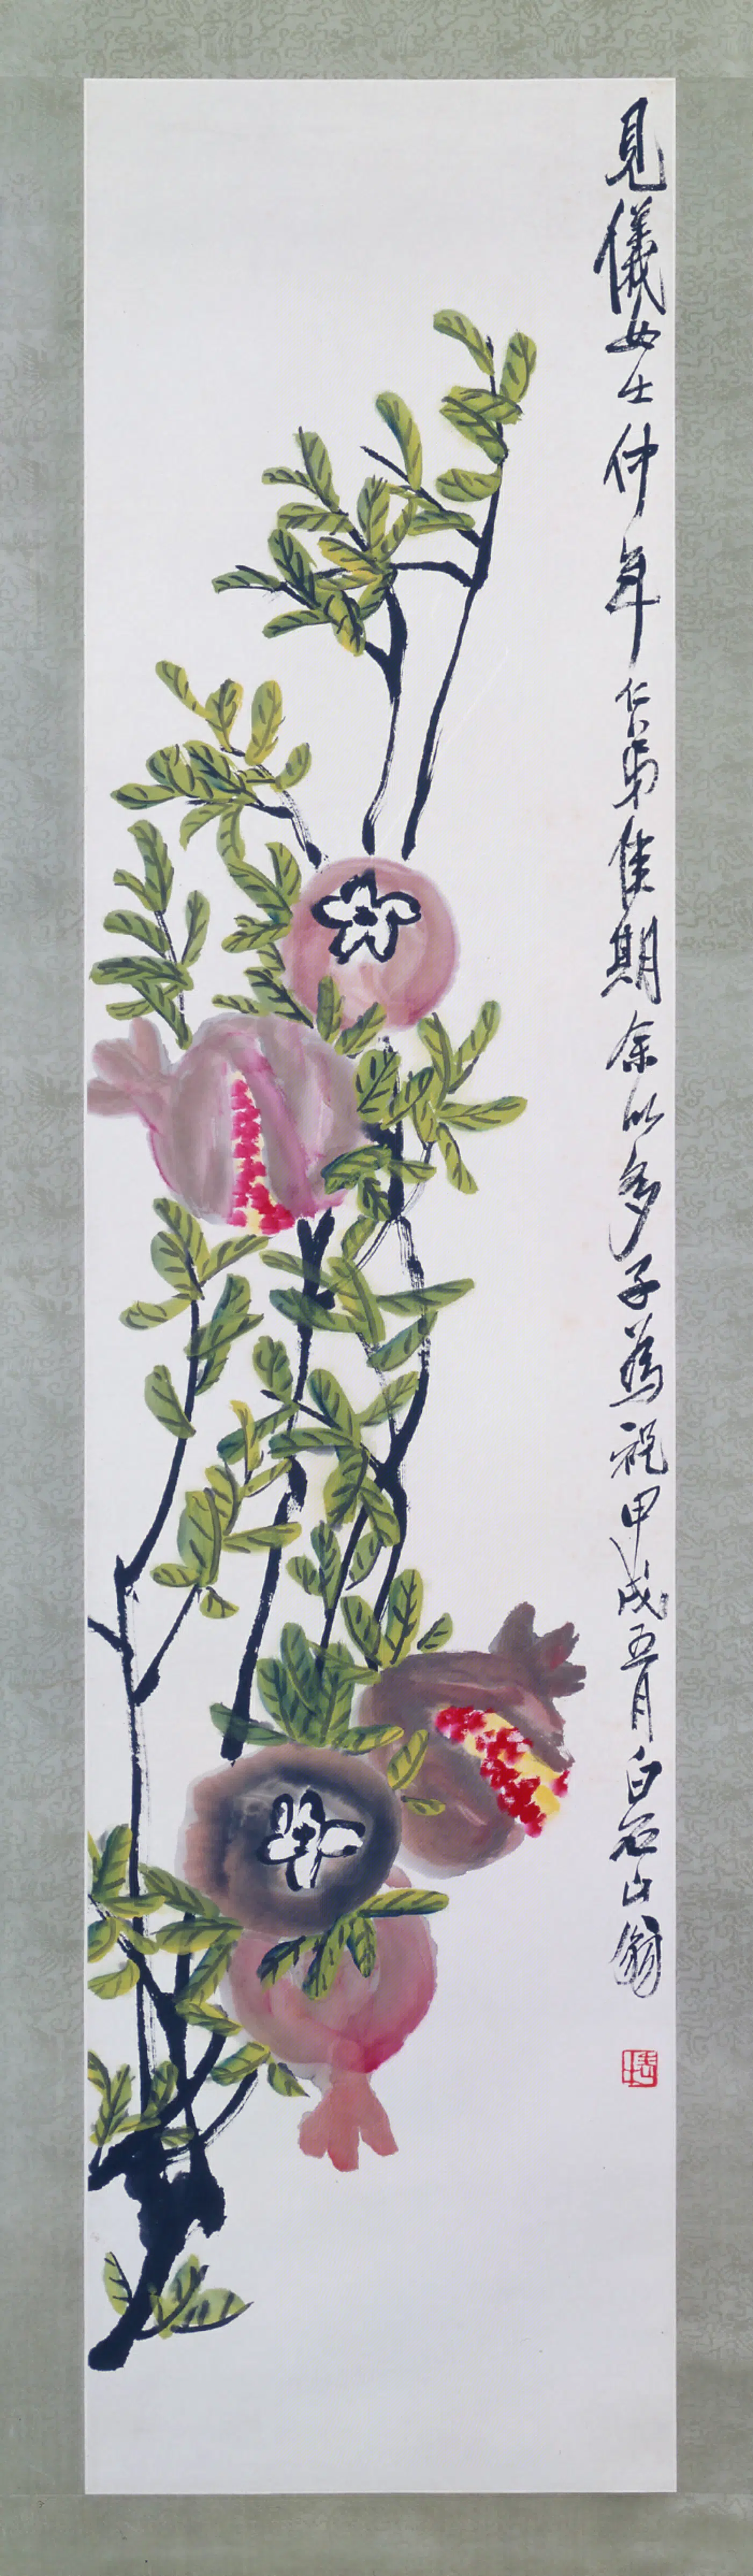 見儀女士仲年仁弟佳期余以多子為祝甲戌五月白石山翁